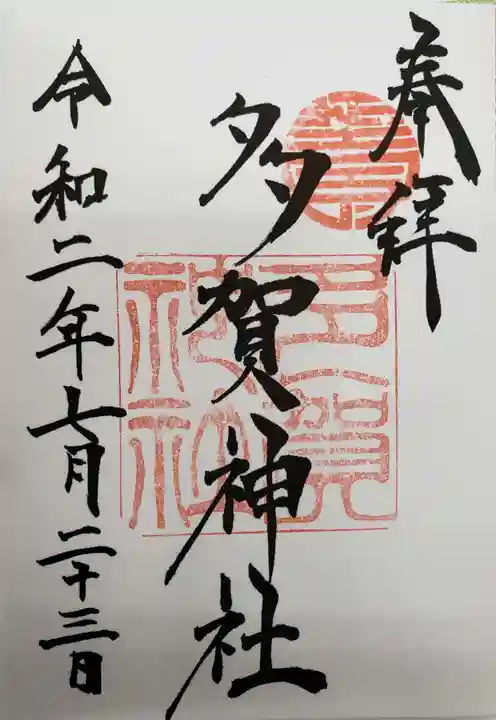 奉拝
多賀神社
令和二年七月二十三日